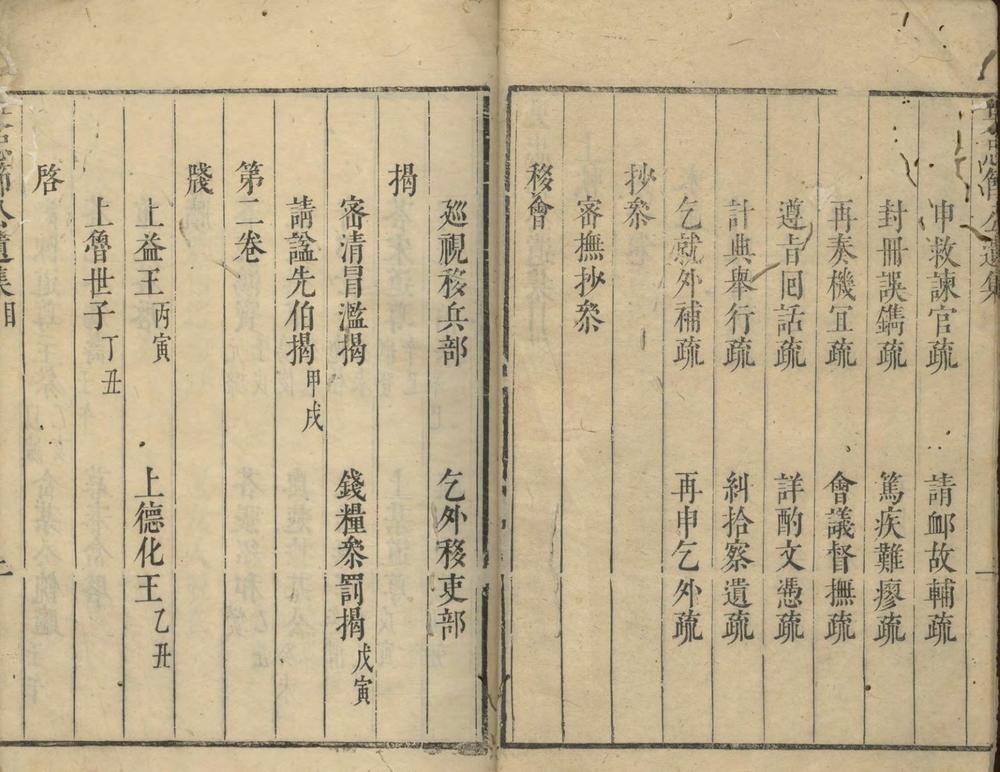 申救諫官疏　請䘏故輔疏
封冊誤鐫疏　篤疾難瘳疏
再奏機冝疏　會議督撫疏
遵㫖回話疏　詳酌文憑疏
計典舉行疏　糾拾察遺疏
乞就外補疏　再申乞外疏
抄叅
審撫抄叅
移會
廵視移兵部　乞外移吏部
揭
審清冒濫揭　錢糧叅罰揭戊寅
請諡先伯揭甲戌
第二卷
牋
上益王丙寅　上德化王乙丑
上魯世子丁丑
啓